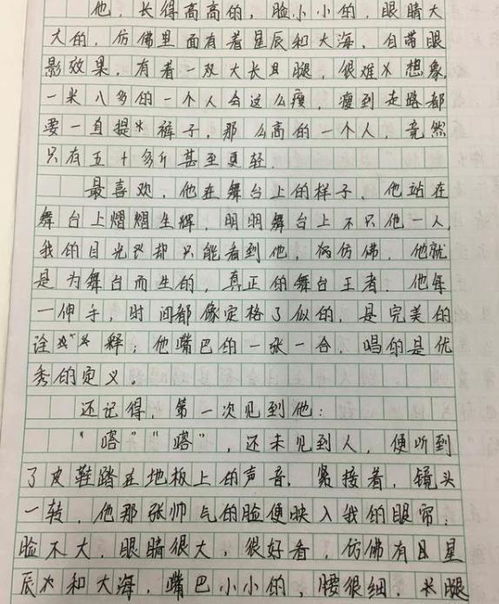 他，长得高高的，脸小小的，眼睛大
大的，仿佛里面有着星辰和大海，自带眼
影效果，有着一双大长腿，很难想象，
一米八多的一个人会这么瘦，瘦到走路都
要一直提裤子，那么高的一个人，竟然
只有五十多斤甚至更轻。
最喜欢，他在舞台上的样子，他站在
舞台上熠熠生辉，明明舞台上不只他一人，
我的目光却只能看到他，仿佛，他就
是为舞台而生的，真正的舞台王者。他每
一伸手，时间都像定格了似的，是完美的
诠释；他嘴巴的一张一合，唱的是优
秀的定义。
还记得，第一次见到他：
“嗒”“嗒”，还未见到人，便听到
了皮鞋踏在地板上的声音，紧接着，镜头
一转，他那张帅气的脸便映入我的眼帘：
脸不大，眼睛很大，很好看，仿佛有星
辰和大海，嘴巴小小的，腰很细，长腿